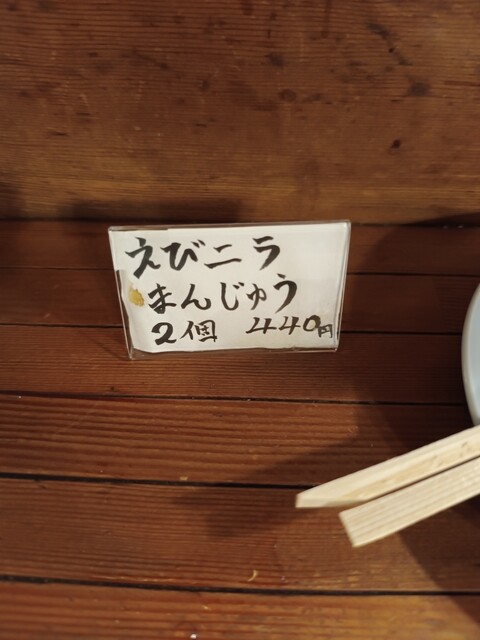 えびニラ
まんじゅう
2個 440円